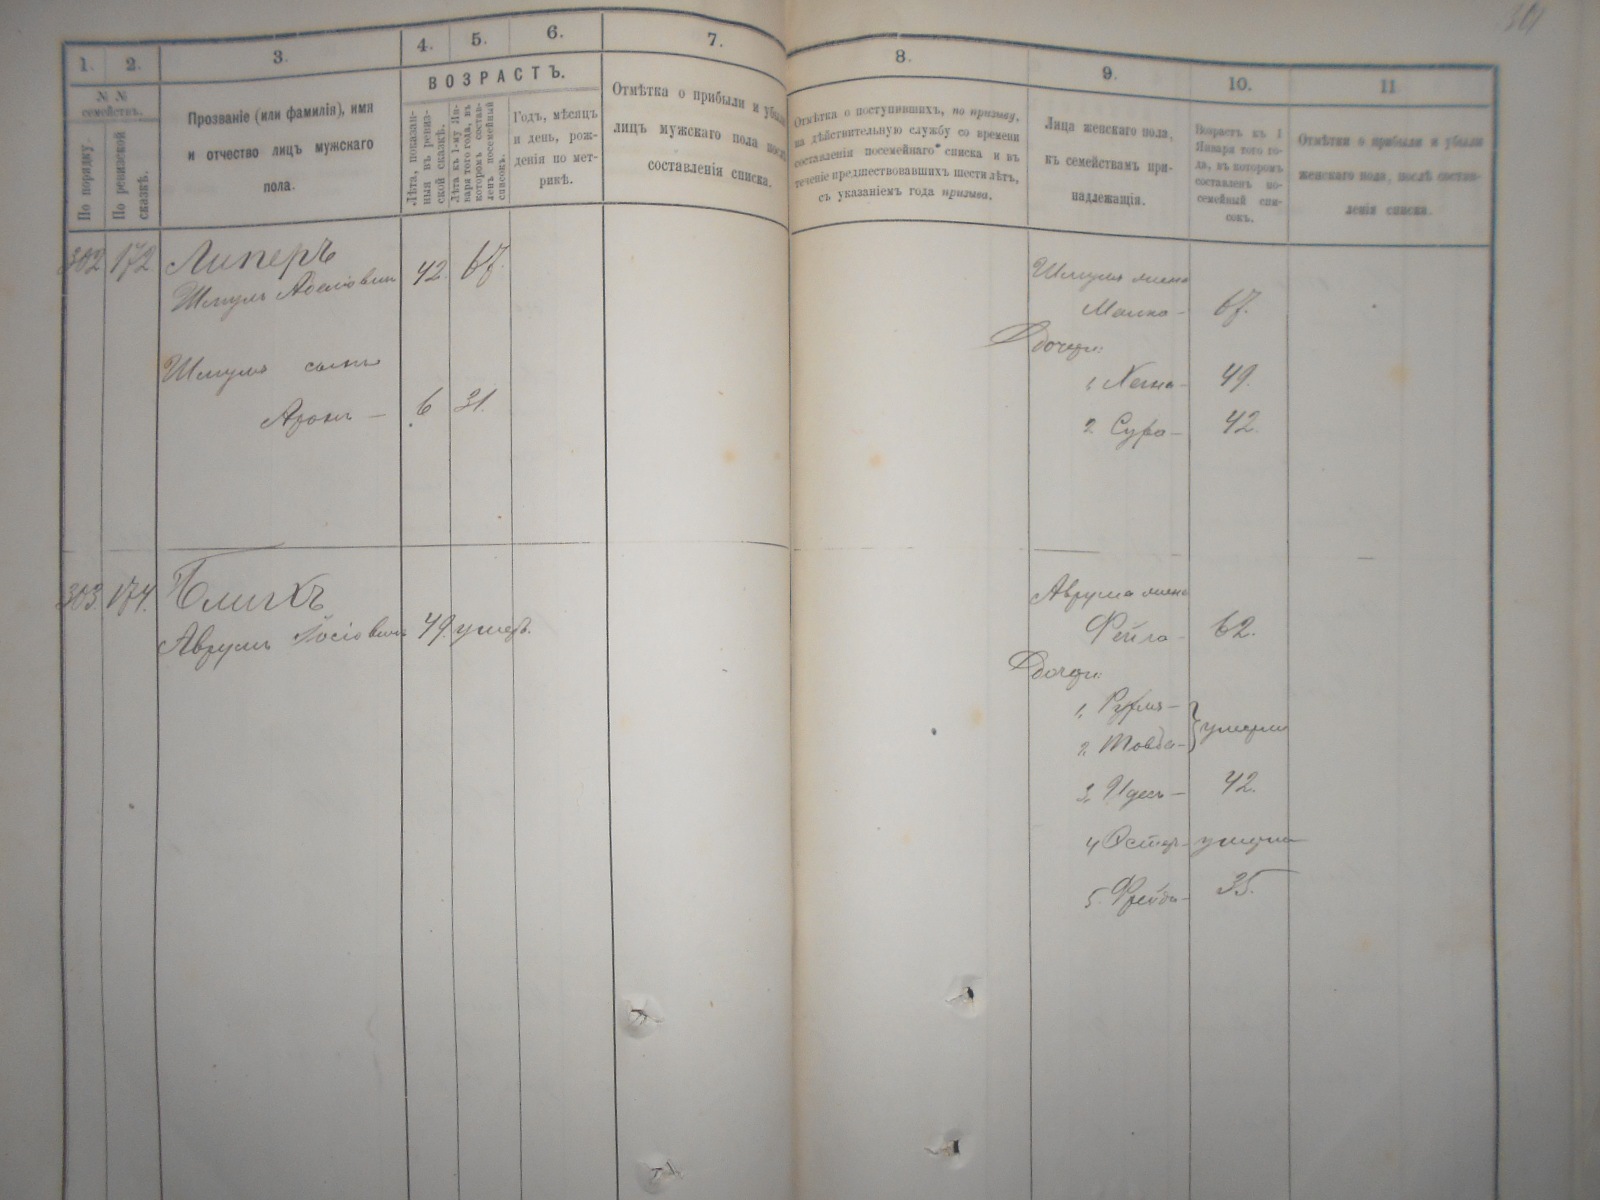 301
1.
2.
3.
4.
5.
6.
7.
8.
9.
10.
11
№ №
семействъ.
По порядку.
По ревизской
сказкѣ.
Прозваніе (или фамилія), имя
и отчество лицъ мужскаго
пола.
ВОЗРАСТЪ.
Лѣта, показан-
ныя въ ревиз-
ской сказкѣ.
Лѣта къ 1-му Ян-
варя того года, въ
которомъ состав-
ленъ посемейный
списокъ.
Годъ, мѣсяцъ
и день, рож-
денія по мет-
рикѣ.
Отмѣтка о прибыли и убыли
лицъ мужскаго пола послѣ
составленія списка.
Отмѣтка о поступившихъ, по призыву,
на дѣйствительную службу со времени
составленія посемейнаго списка и въ
теченіе предшествовавшихъ шести лѣтъ,
съ указаніемъ года призыва.
Лица женскаго пола,
къ семействамъ при-
надлежащія.
Возрастъ къ 1
Января того го-
да, въ которомъ
составленъ по-
семейный спи-
сокъ.
Отмѣтки о прибыли и убыли
женскаго пола, послѣ состав-
ленія списка.
302 172 Липеръ
Шмуль 42. 67.
Шмуля сынъ
Аронъ — 6 31.
Шмуля жена
Малка — 67.
дочери:
1. — 49.
2. Сура — 42.
303. 174.
Аврумъ Іосіовичъ 49. умеръ.
Аврума жена
Фейга — 62.
дочери:
1.
2. Товба — } умерли
3. Идесъ — 42.
4. Эстеръ — умерла
5. Фрейда — 35.